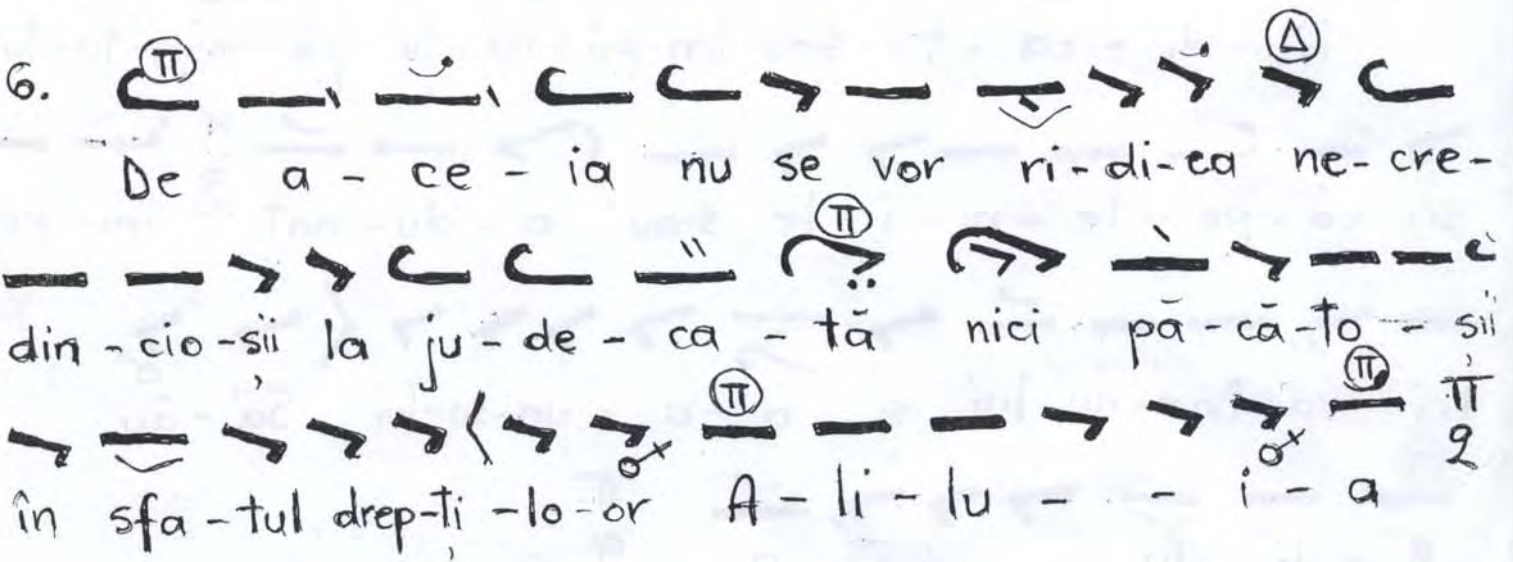 6. π Δ
De a - ce - ia nu se vor ri - di - ca ne - cre -
π
din - cio - șii la ju - de - ca - tă nici pă - că - to - șii
π π π q
în sfa - tul drep - ți - lo - or A - li - lu - - i - a